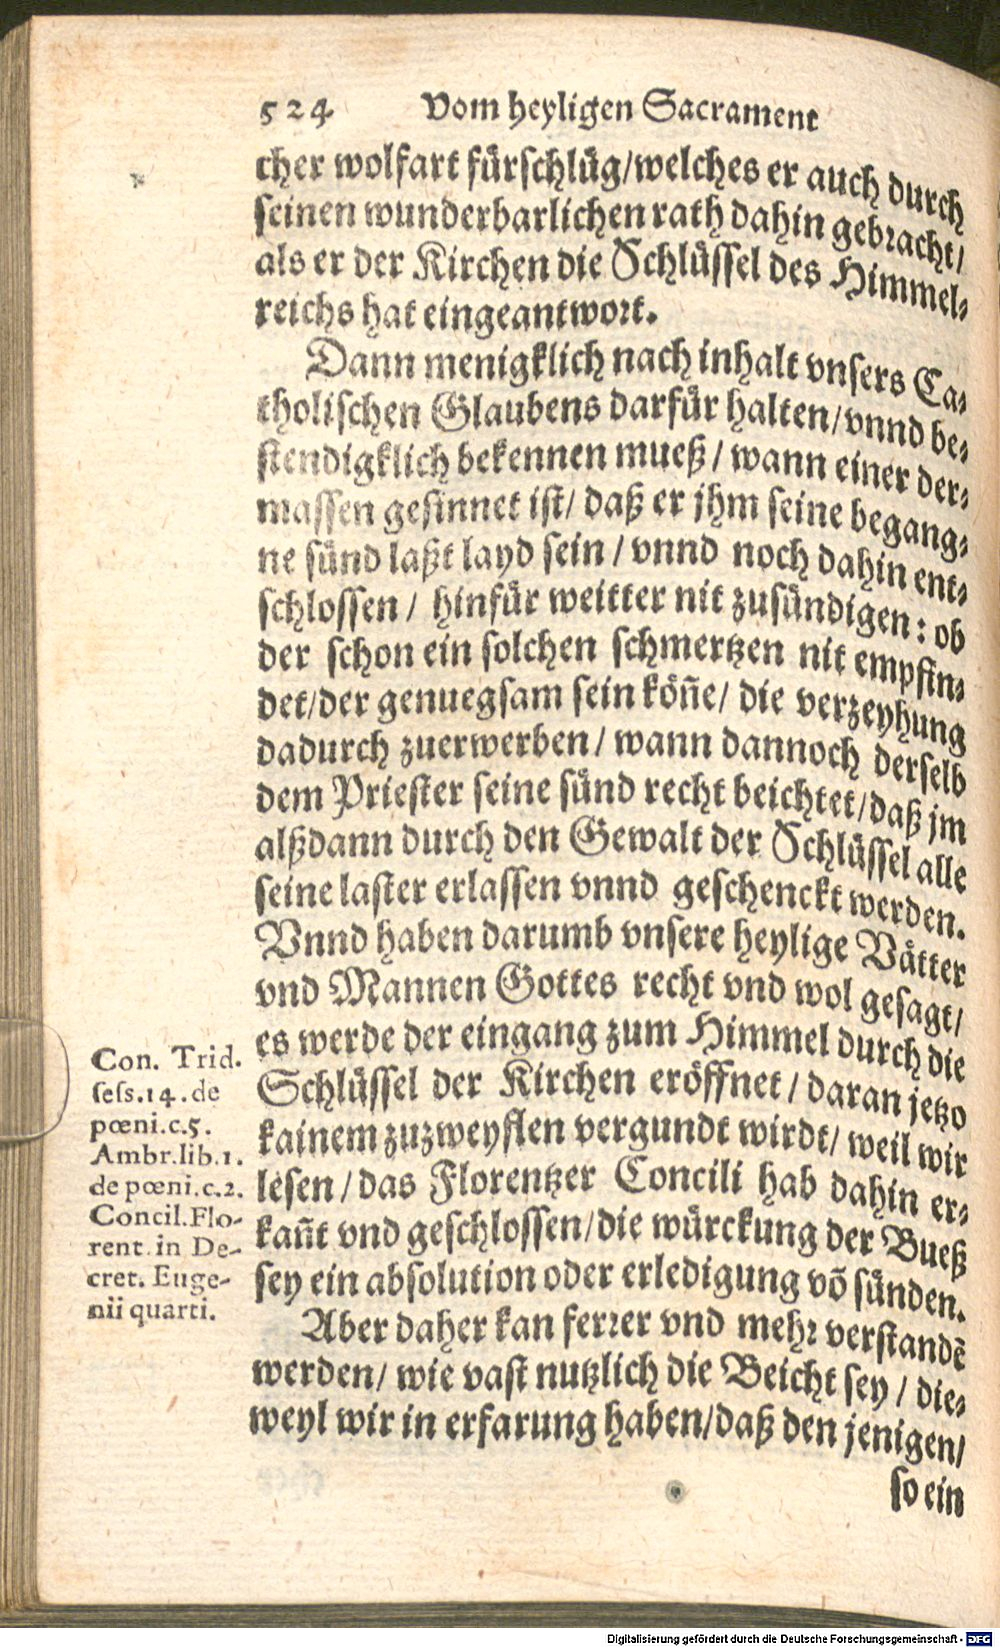 524 Vom heyligen Sacrament
cher wolfart fürschlüg/welches er auch durch
seinen wunderbarlichen rath dahin gebracht/
als er der Kirchen die Schlüssel des Himmel-
reichs hat eingeantwort.
Dann menigklich nach inhalt vnsers Ca-
tholischen Glaubens darfür halten/vnnd be-
stendigklich bekennen mueß/wann einer der-
massen gesinnet ist/ daß er jhm seine begang-
ne sünd laßt layd sein/vnnd noch dahin ent-
schlossen/ hinfür weitter nit zusündigen: ob
der schon ein solchen schmertzen nit empfin-
det/der genuegsam sein köñe/ die verzeyhung
dadurch zuerwerben/wann dannoch derselb
dem Priester seine sünd recht beichtet/daß jm
alßdann durch den Gewalt der Schlüssel alle
seine laster erlassen vnnd geschenckt werden.
Vnnd haben darumb vnsere heylige Vätter
vnd Mannen Gottes recht vnd wol gesagt/
es werde der eingang zum Himmel durch die
Schlüssel der Kirchen eröffnet/daran jetzo
kainem zuzweyflen vergundt wirdt/ weil wir
lesen/das Florentzer Concili hab dahin er-
kañt vnd geschlossen/die würckung der Bueß
sey ein absolution oder erledigung võ sünden.
Aber daher kan ferrer vnd mehr verstandẽ
werden/ wie vast nutzlich die Beicht sey/die-
weyl wir in erfarung haben/daß den jenigen/
so ein
Con. Trid.
sess.14.de
pœni.c.5.
Ambr.lib.1.
de pœni.c.2.
Concil.Flo-
rent.in De-
cret. Euge-
nii quarti.
Digitalisierung gefördert durch die Deutsche Forschungsgemeinschaft - DFG